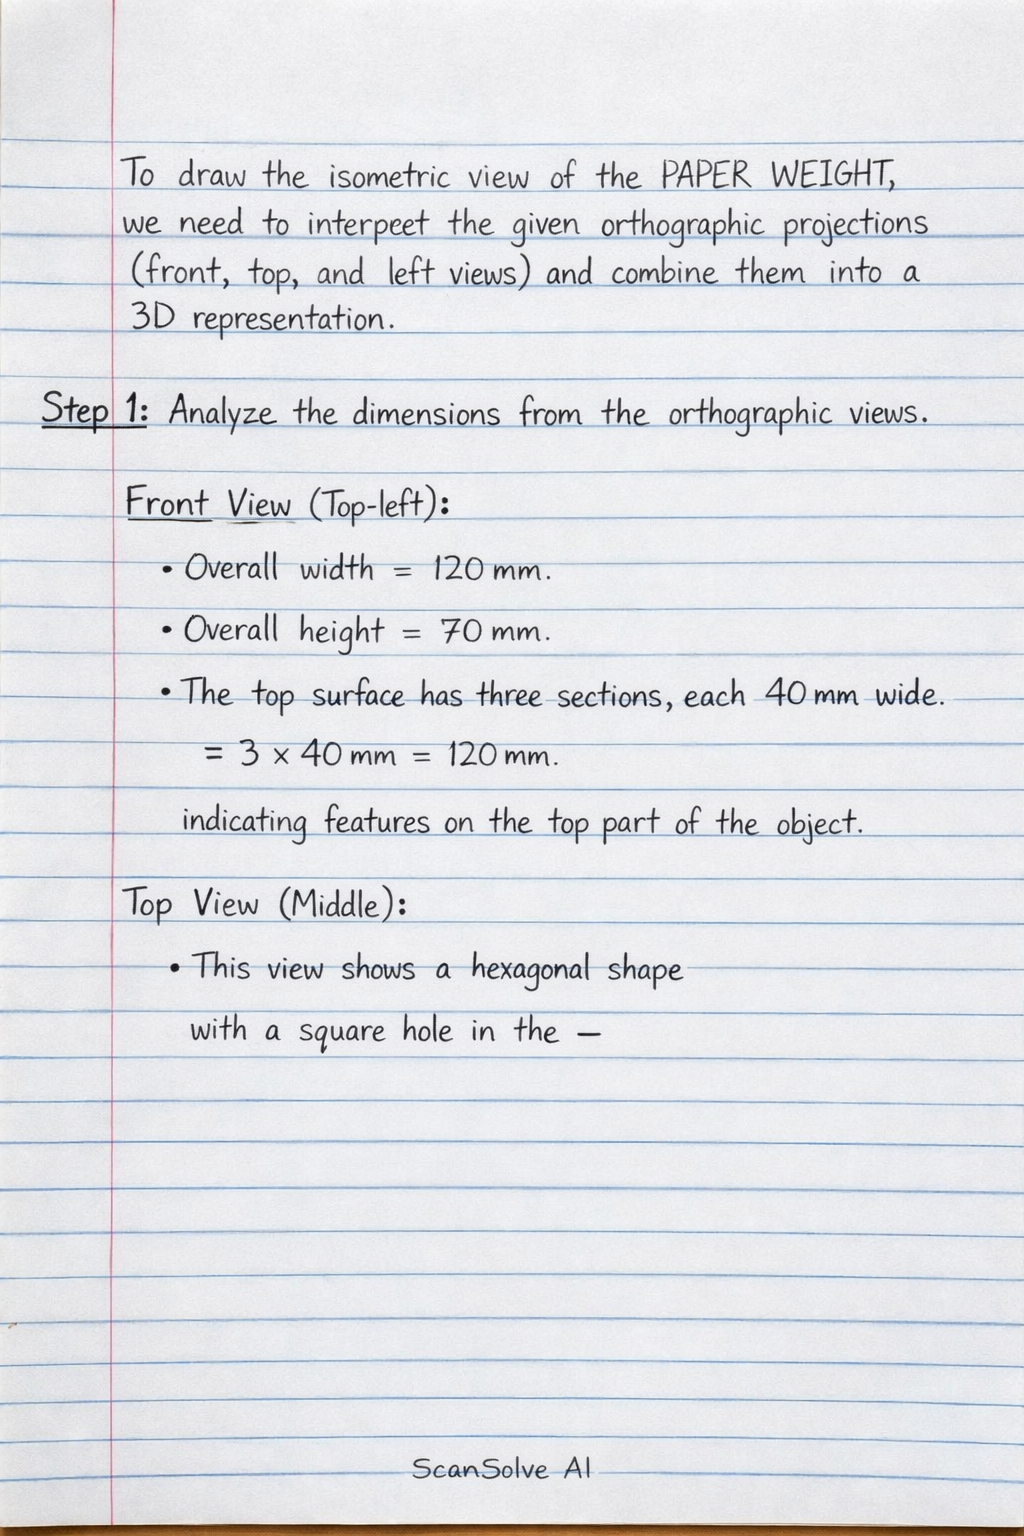 To draw the isometric view of the PAPER WEIGHT,
we need to interpeet the given orthographic projections
(front, top, and left views) and combine them into a
3D representation.
Step 1: Analyze the dimensions from the orthographic views.
Front View (Top-left):
• Overall width = 120 mm.
• Overall height = 70 mm.
• The top surface has three sections, each 40 mm wide.
= 3 × 40 mm = 120 mm.
indicating features on the top part of the object.
Top View (Middle):
• This view shows a hexagonal shape
with a square hole in the —
ScanSolve AI